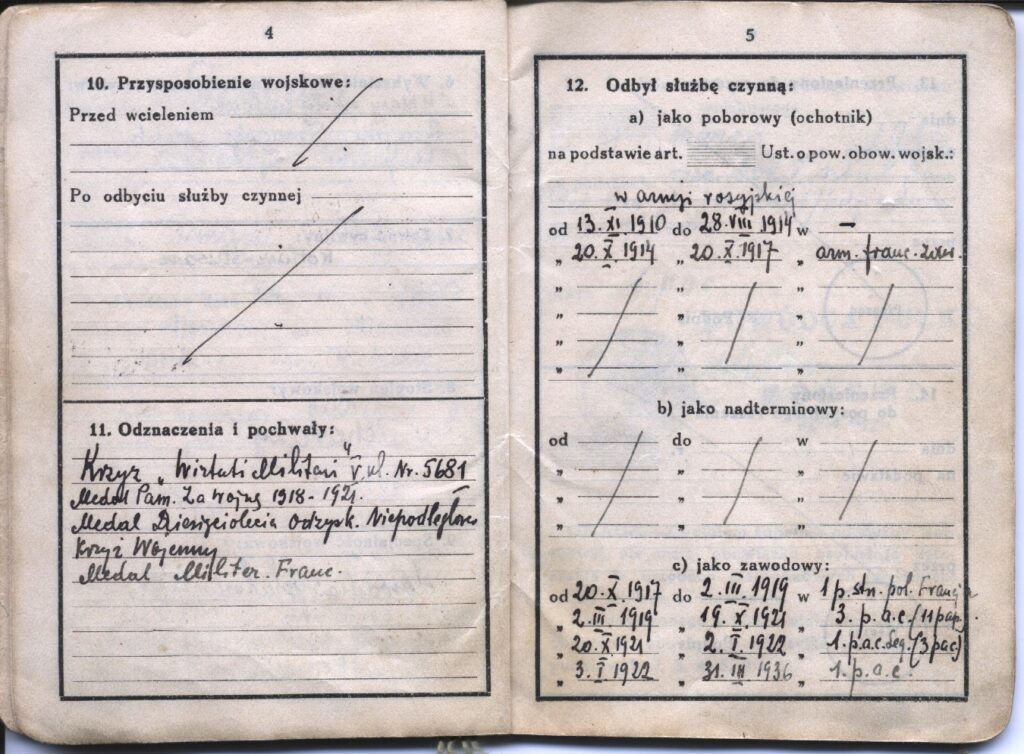 4
10. Przysposobienie wojskowe:
Przed wcieleniem
Po odbyciu służby czynnej
11. Odznaczenia i pochwały:
Krzyż „Wirtuti Militari" V kl. Nr. 5681
Medal Pam. Za Wojnę 1918-1921.
Medal Dziesięciolecia Odzysk. Niepodległości
Krzyż Wojenny
Medal Militer. Franc.
5
12. Odbył służbę czynną:
a) jako poborowy (ochotnik)
na podstawie art. Ust. o pow. obow. wojsk.:
w armji rosyjskiej
od 13. XI 1910 do 28. VIII 1914 w —
„ 20. X. 1914 „ 20. X. 1917 „ arm. franc.
„ „ „
„ „ „
„ „ „
„ „ „
b) jako nadterminowy:
od do w
„ „ „
„ „ „
„ „ „
c) jako zawodowy:
od 20. X. 1917 do 2. III. 1919 w 1 p. str. pol. Francja
„ 2. III. 1919 „ 19. X. 1921 „ 3. p. a. c. (11 pap)
„ 20. X. 1921 „ 2. I. 1922 „ 1. p. a. c. Leg. (3 pac)
„ 3. I. 1922 „ 31. III 1936 „ 1. p. a. c.